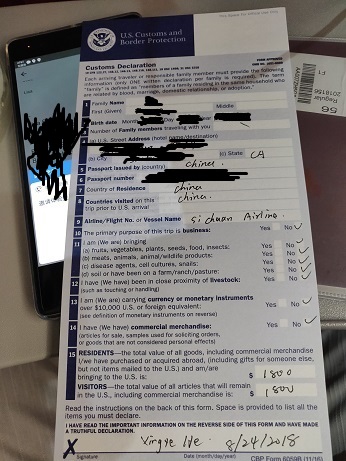 U.S. Customs and
Border Protection
Customs Declaration
FORM APPROVED
Each arriving traveler or responsible family member must provide the following
information (only ONE written declaration per family is required). The term
"family" is defined as "members of a family residing in the same household who
are related by blood, marriage, domestic relationship, or adoption."
1 Family Name
First (Given) Middle
2 Birth date Month Day
3 Number of Family members traveling with you
4 (a) U.S. Street Address (hotel name/destination)
(b) City (c) State CA
5 Passport issued by (country) china
6 Passport number
7 Country of Residence china
8 Countries visited on this
trip prior to U.S. arrival china.
9 Airline/Flight No. or Vessel Name Sichuan Airline.
10 The primary purpose of this trip is business: Yes No
11 I am (We are) bringing
(a) fruits, vegetables, plants, seeds, food, insects: Yes No
(b) meats, animals, animal/wildlife products: Yes No
(c) disease agents, cell cultures, snails: Yes No
(d) soil or have been on a farm/ranch/pasture: Yes No
12 I have (We have) been in close proximity of livestock: Yes No
(such as touching or handling)
13 I am (We are) carrying currency or monetary instruments
over $10,000 U.S. or foreign equivalent: Yes No
(see definition of monetary instruments on reverse)
14 I have (We have) commercial merchandise: Yes No
(articles for sale, samples used for soliciting orders,
or goods that are not considered personal effects)
15 RESIDENTS—the total value of all goods, including commercial merchandise
I/we have purchased or acquired abroad, (including gifts for someone else,
but not items mailed to the U.S.) and am/are
bringing to the U.S. is: $ 1800
VISITORS—the total value of all articles that will remain
in the U.S., including commercial merchandise is: $ 1800
Read the instructions on the back of this form. Space is provided to list all the
items you must declare.
I HAVE READ THE IMPORTANT INFORMATION ON THE REVERSE SIDE OF THIS FORM AND HAVE MADE
A TRUTHFUL DECLARATION.
X 8/24/2018
Signature Date (month/day/year)
CBP Form 6059B (11/16)